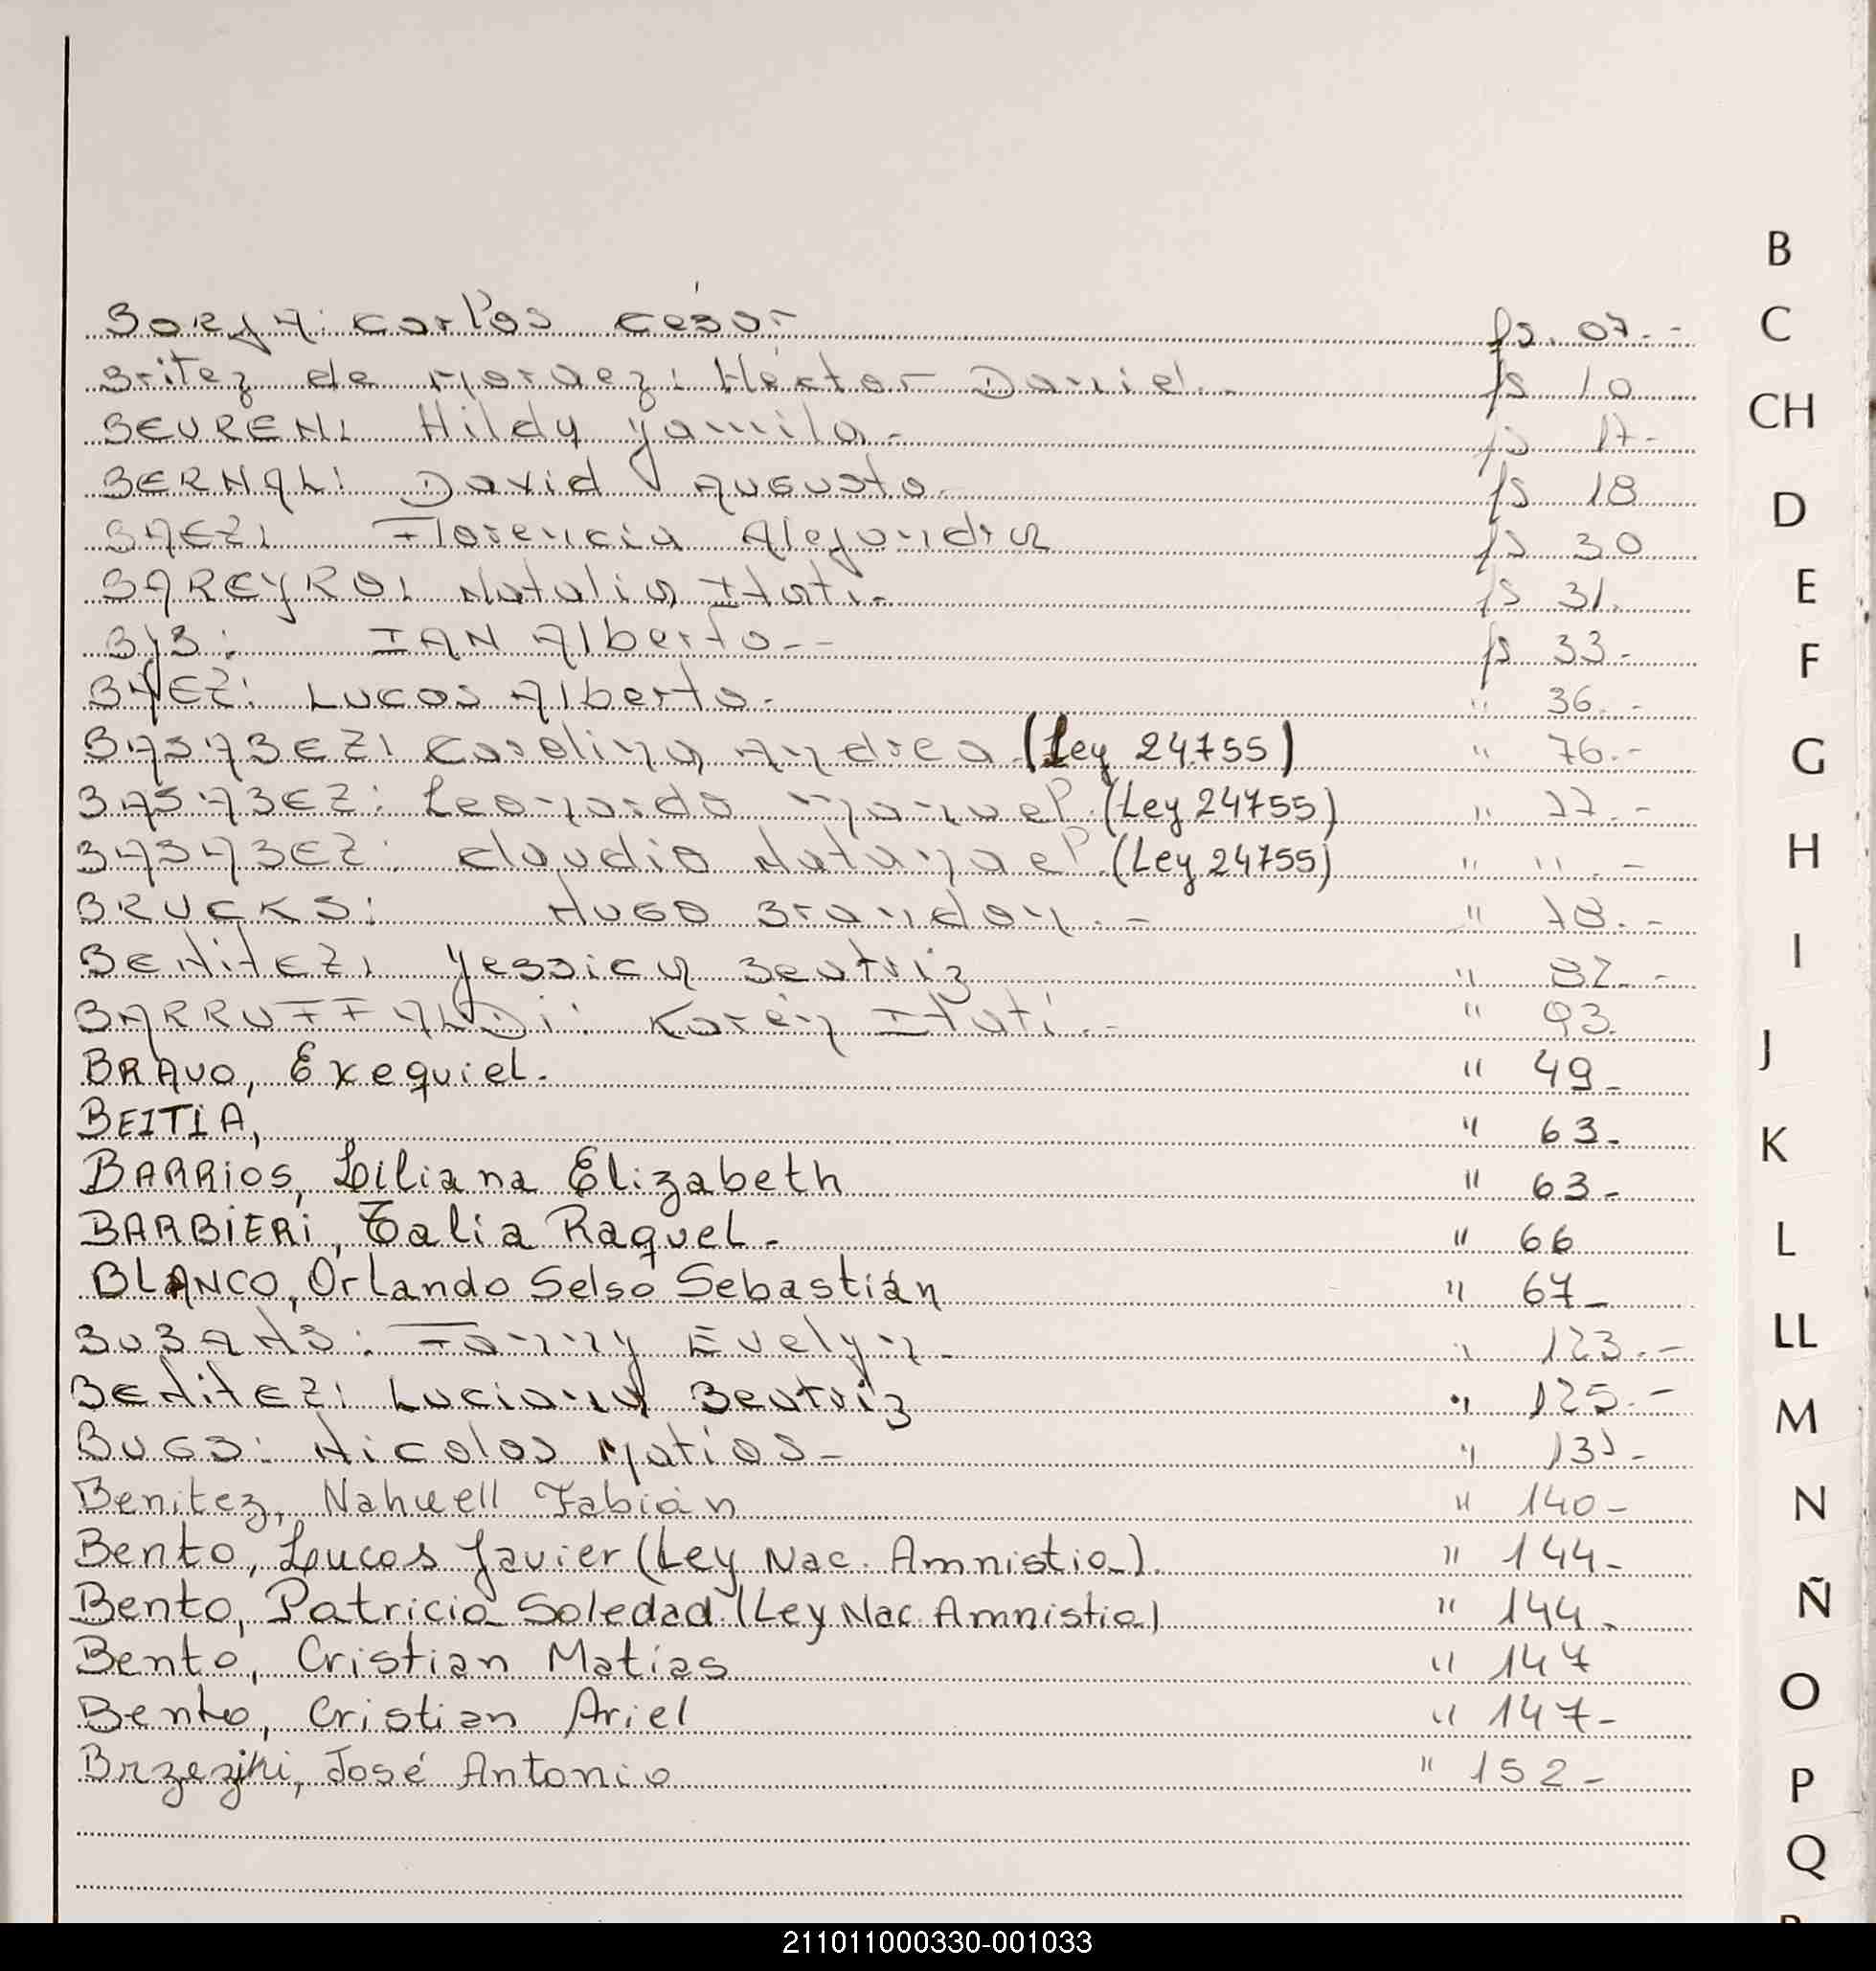 BORJA: Carlos César fs. 07.-
Britez de Moraez: Héctor Daniel.- fs 10
BEUREN: Hildy Yamila.- fs 17-
BERNAL: David Augusto. fs 18
BAEZ: Florencia Alejandra fs 30
BAREYRO: Natalia Itati.- fs 31.
BYS: IAN Alberto.-- fs 33.-
BAEZ: Lucas Alberto.- " 36.-
BASABEZ: Carolina Andrea (Ley 24755) " 76.-
BASABEZ: Leonardo Manuel (Ley 24755) " 77.-
BASABEZ: Claudio Natanael (Ley 24755) " " .-
BRUCKS: HUGO Brandon.- " 78.-
BENITEZ: Yessica Beatriz " 82.-
BARRUFFALDI: Karen Itati.- " 93.
BRAVO, Exequiel.- " 49-
BEITIA, " 63-
BARRIOS, Liliana Elizabeth " 63-
BARBIERI, Talia Raquel.- " 66
BLANCO, Orlando Selso Sebastián " 67-
Fanny Evelyn.- " 123.-
BENITEZ: Luciana Beatriz " 125.-
BUGS: Nicolas Matias- " 131-
Benitez, Nahuell Fabián " 140-
Bento, Lucas Javier (Ley Nac. Amnistia). " 144-
Bento, Patricia Soledad (Ley Nac. Amnistia) " 144-
Bento, Cristian Matías " 147
Bento, Cristian Ariel " 147-
José Antonio " 152-
B
C
CH
D
E
F
G
H
I
J
K
L
LL
M
N
Ñ
O
P
Q
211011000330-001033